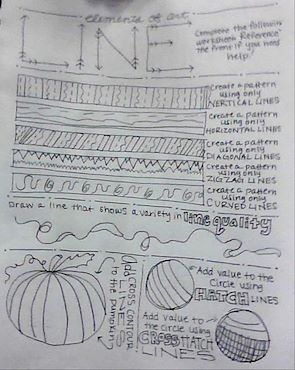 elements of art
LINE
Complete the following
worksheet. Reference
the front if you need
help.
Create a pattern
using only
VERTICAL LINES
Create a pattern
using only
HORIZONTAL LINES
Create a pattern
using only
DIAGONAL LINES
Create a pattern
using only
ZIGZAG LINES
Create a pattern
using only
CURVED LINES
Draw a line that shows a variety in line quality
Add CROSS CONTOUR
LINES
to the pumpkin
Add value to the
circle using
HATCH LINES
Add value to
the circle using
CROSSHATCH
LINES